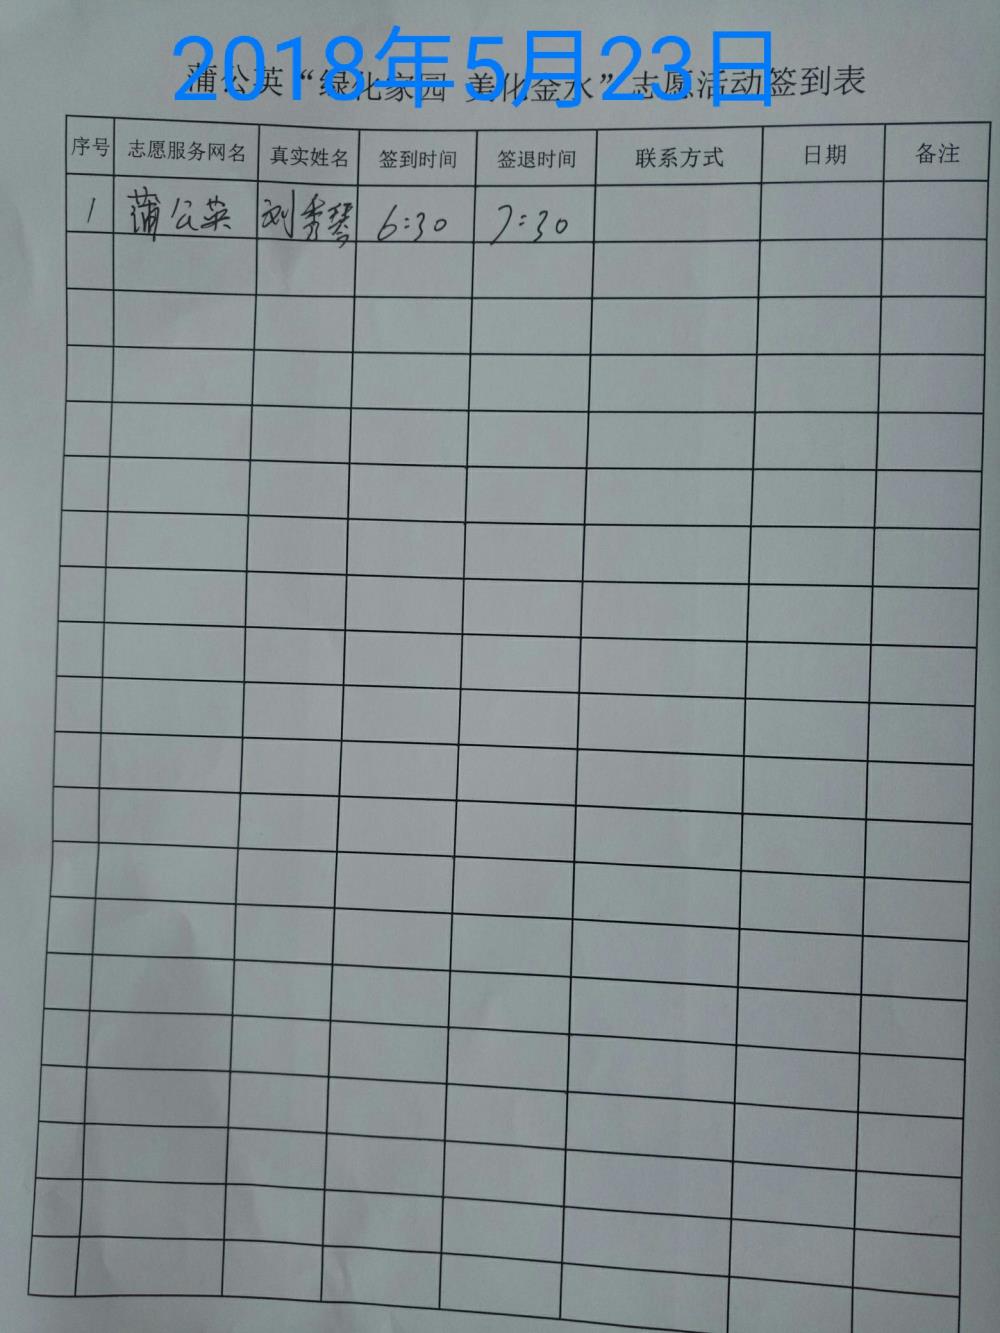 2018年5月23日
蒲公英“绿化家园 美化金水”志愿活动签到表
序号 志愿服务网名 真实姓名 签到时间 签退时间 联系方式 日期 备注
1 蒲公英 刘秀琴 6:30 7:30